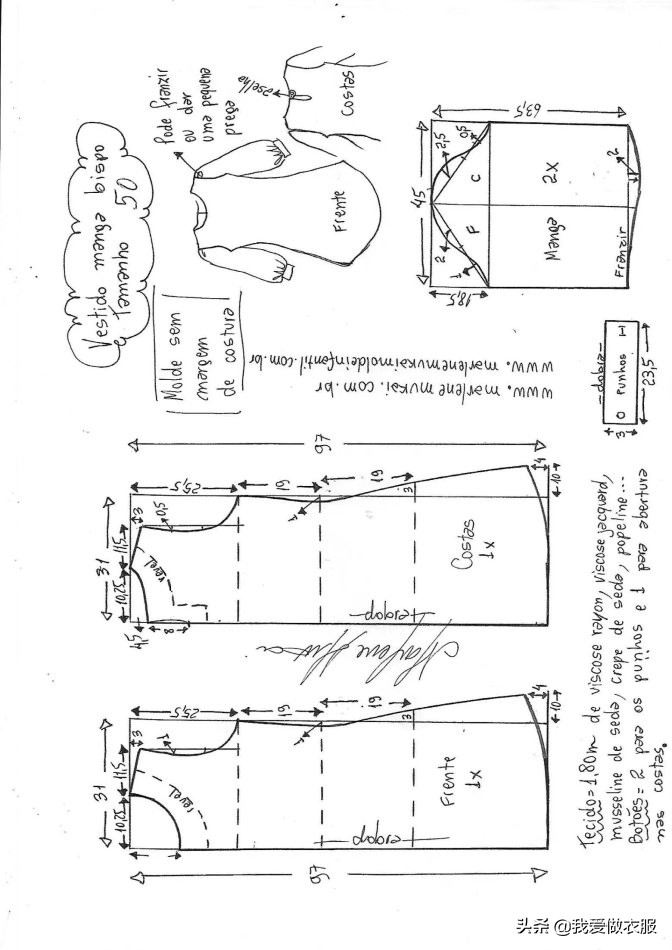 Vestido manga bispo
Tamanho 50
Molde sem
margem
de costura
Pode franzir
ou dar
uma pequena
prega
aselha
Costas
Frente
www.marlenemukai.com.br
www.marlenemukaimoldeinfantil.com.br
45
63,5
18,5
2,5
0,5
2
1
C
F
2x
Manga
Franzir
2
1
=dobra=
O punhos I
3
23,5
97
31
10,25
11,5
3
25,5
19
19
0,5
1
3
4
10
4,5
8
revel
Costas
1x
dobra
97
31
10,25
11,5
3
25,5
19
19
1
1
3
4
10
revel
Frente
1x
dobra
Tecido=1,80m de viscose rayon, viscose jacquard,
musseline de seda, crepe de seda, popeline...
Botões= 2 para os punhos e 1 para abertura
nas costas.
头条 @我爱做衣服